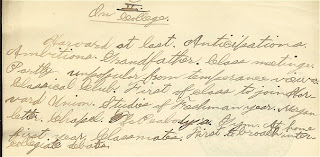 II.
In College.
Harvard at last. Anticipations.
Ambitions. Grandfather. Class meetings.
Partly unpopular from temperance views.
Classical Club. First of class to join Har-
vard Union. Studies of Freshman year.
lett. Chapel. The Peabodys. Exam. At home
first year. Classmates. First to broach inter-
collegiate debate.